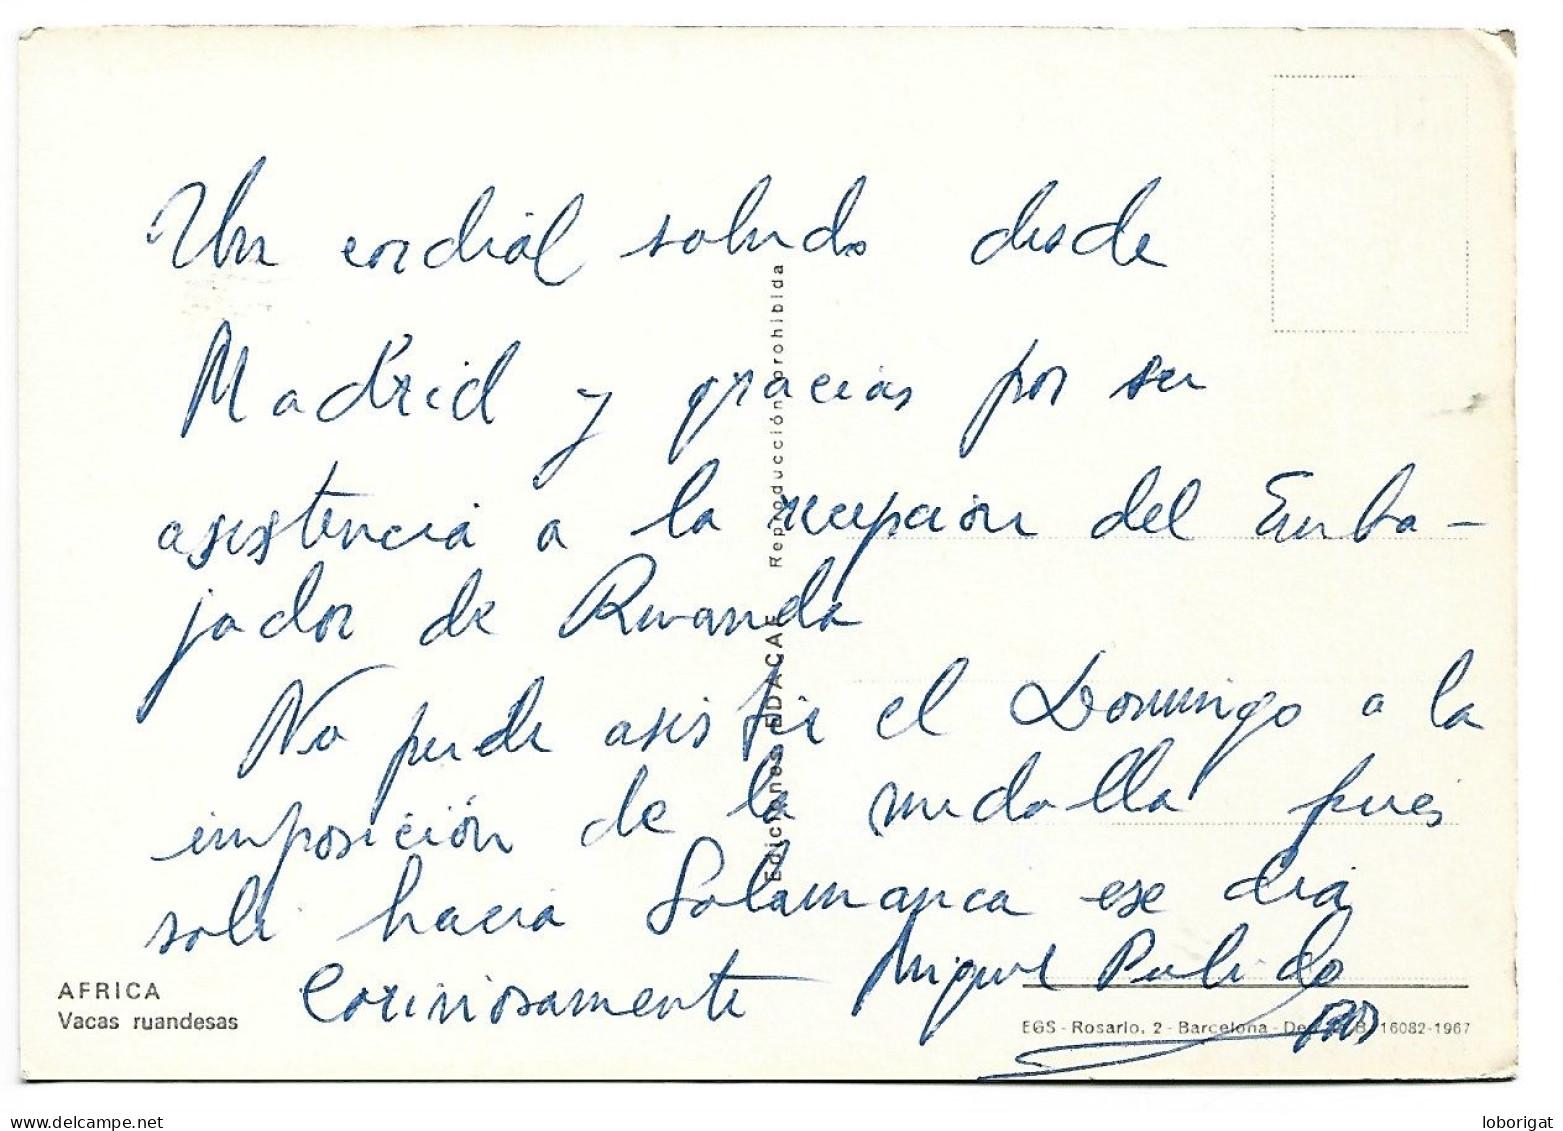 Un cordial saludo desde
Madrid y gracias por su
asistencia a la recepción del Emba-
jador de Rwanda
No pude asistir el Domingo a la
imposición de la medalla pues
salí hacia Salamanca ese día
Cariñosamente Miguel Pulido
AFRICA
Vacas ruandesas
Ediciones EDACAE Reproducción prohibida
EGS - Rosario, 2 - Barcelona - B. 16082-1967
www.delcampe.net
loborigat